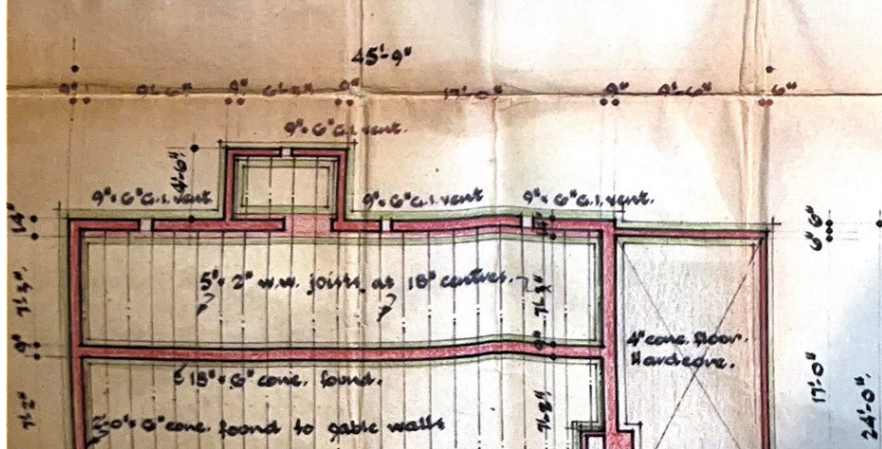 45'-9"
9" 9'-6" 9" 9" 17'-0" 9" 9'-6" 6"
9" × 6" C.I. vent.
4'-6"
9" × 6" C.I. vent 9" × 6" C.I. vent 9" × 6" C.I. vent.
14"
6" 6"
5" × 2" w.w. joists at 18" centres.
7'-2½" 7'-2½"
9" 9"
4" conc. floor.
Hardcore.
18" × 6" conc. found.
17'-0"
24'-0"
7'-2" 7'-2"
2'-0" × 6" conc. found to gable walls